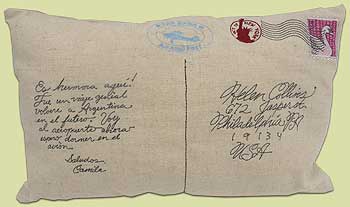 Es hermosa aquí!
Fue un viaje genial
volveré a Argentina
en el futuro. Voy
al aeropuerto ahora
espero dormir en el
avion.
Saludos
Camila
Helen Collins
672 Gaspar
Philadelphia PA
19134
USA